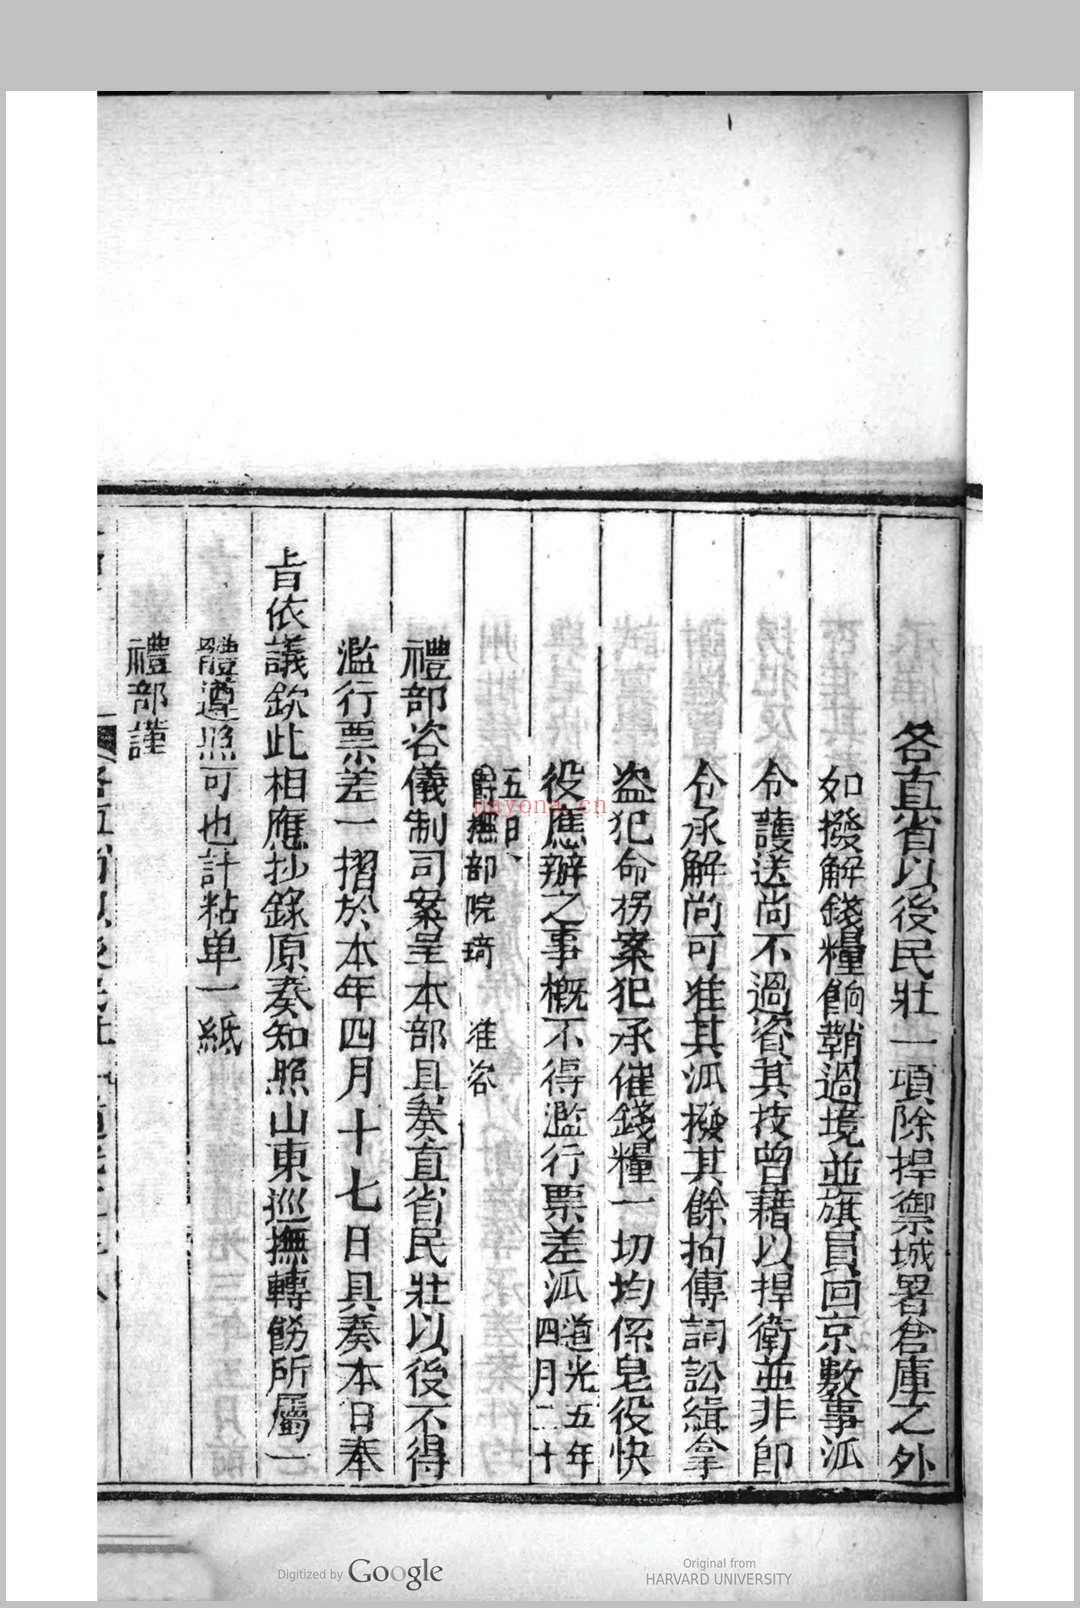 各直省以後民壯一項除捍禦城署倉庫之外
如撥解錢糧餉鞘過境並旗員回京敷事派
令護送尚不過資其技曾藉以捍衛並非即
令承解尚可准其派撥其餘拘傳詞訟緝拿
盗犯命拐案犯承催錢糧一切均係皂役快
役應辦之事概不得濫行票差派道光五年
四月二十
五日
爵撫部院琦 准咨
禮部咨儀制司案呈本部具奏直省民壯以後不得
濫行票差一摺於本年四月十七日具奏本日奉
旨依議欽此相應抄錄原奏知照山東巡撫轉飭所屬一
體遵照可也計粘单一紙
禮部謹
各直省以後民壯
nayona.cn
Digitized by Google
Original from
HARVARD UNIVERSITY